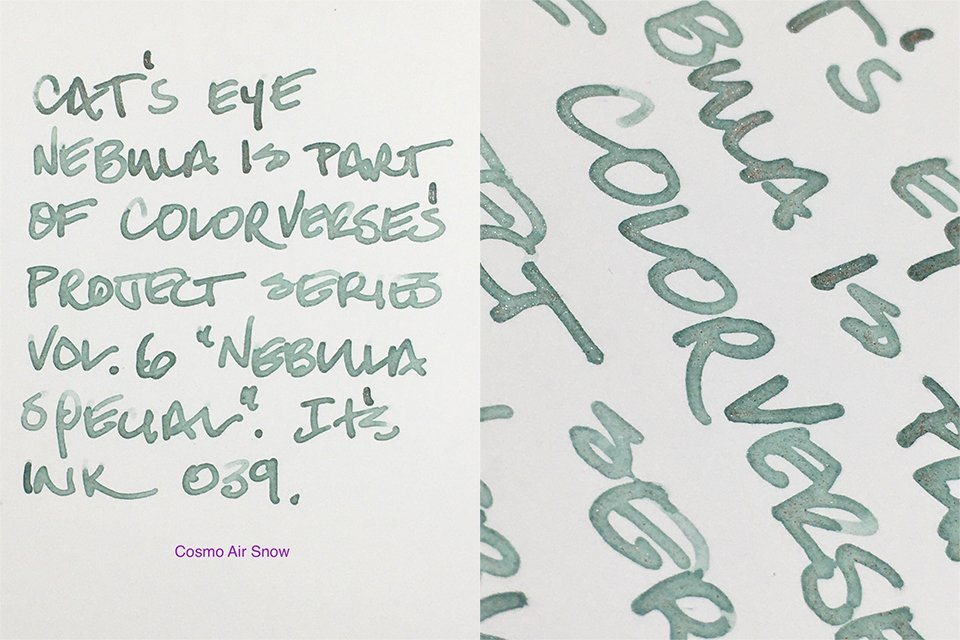 CAT'S EYE
NEBULA IS PART
OF COLORVERSE'S
PROJECT SERIES
VOL. 6 "NEBULA
SPECIAL". It's
INK 039.
Cosmo Air Snow
BULA
COLORVERSE